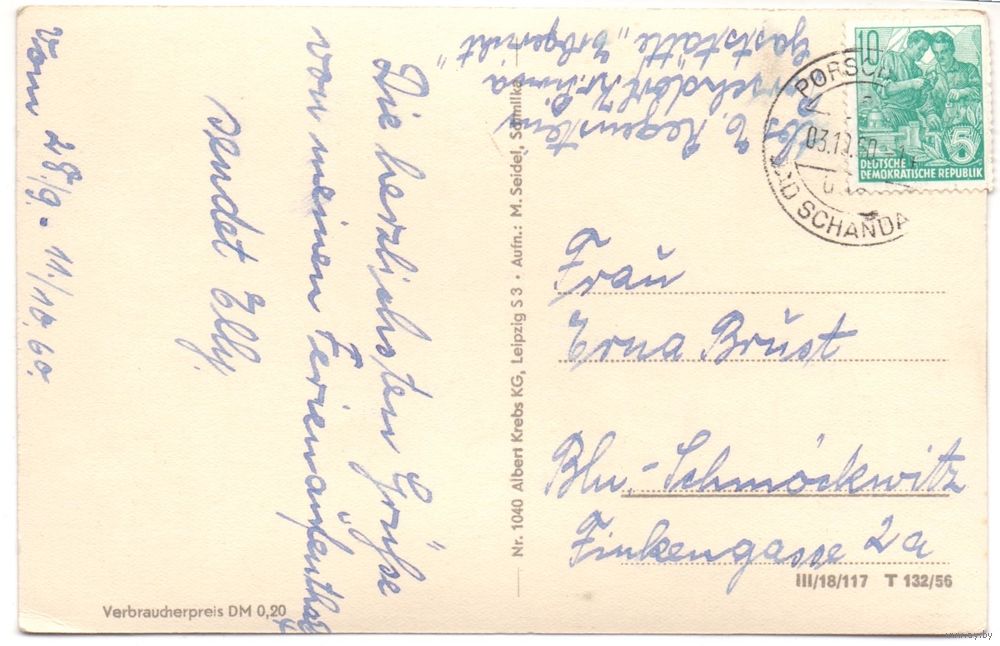 Die herzlichsten Grüße
von meinen Ferienaufenthalt
sendet Elly.
Vom 28./9. - 11./10.60.
Abs. E. Regenstein
Porschdorf Kr. Pirna
Gaststätte „Erbgericht"
Frau
Erna Brust
Bln.-Schmöckwitz
Finkengasse 2a
10
DEUTSCHE
DEMOKRATISCHE REPUBLIK
5
PORSCHD
03.10.60
BAD SCHANDA
Nr. 1040 Albert Krebs KG, Leipzig S 3 · Aufn.: M. Seidel, Schmilka
III/18/117 T 132/56
Verbraucherpreis DM 0,20